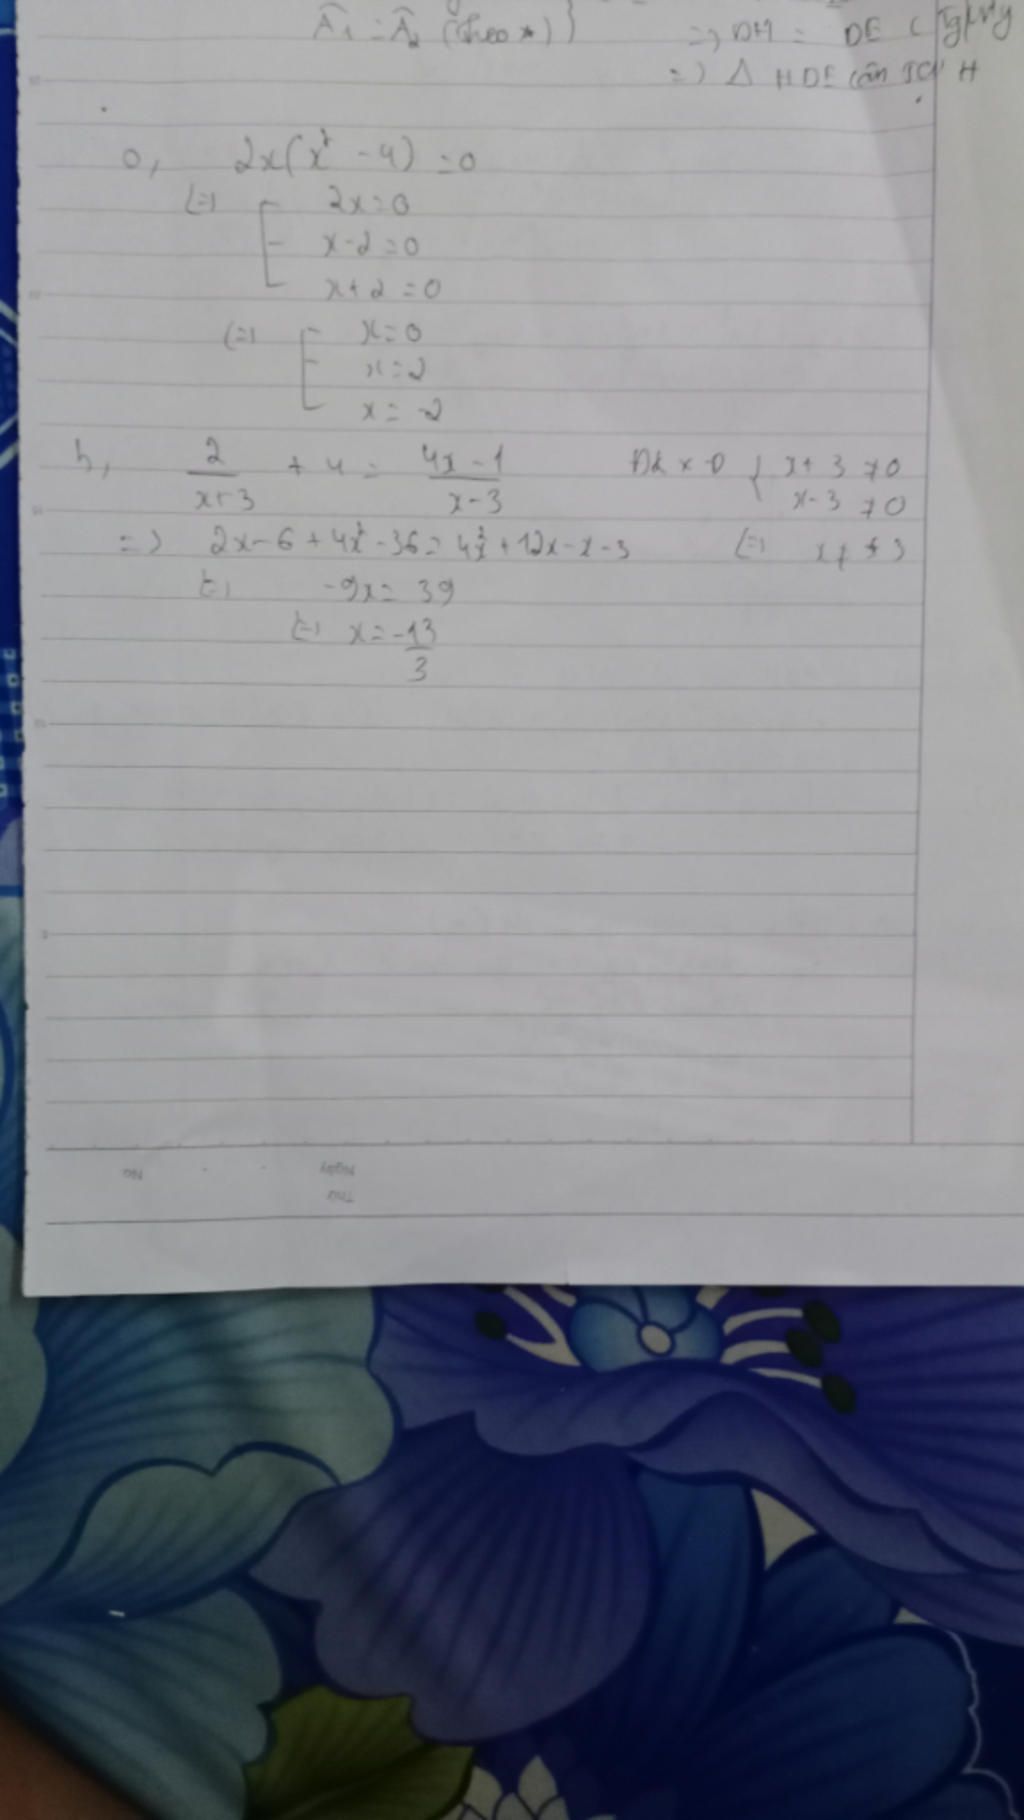 Â₁ = Â₂ (theo *) } => DH = DE (
=> Δ HDE cân tại H
a, 2x(x² - 4) = 0
(=) [ 2x = 0
x - 2 = 0
x + 2 = 0
(=) [ x = 0
x = 2
x = -2
b, 2/(x+3) + 4 = (4x - 1)/(x - 3) ĐKXĐ { x + 3 ≠ 0
x - 3 ≠ 0
=> 2x - 6 + 4x² - 36 = 4x² + 12x - x - 3 (=) x ≠ ±3
(=) -9x = 39
(=) x = -13/3
No Ngày
Thứ